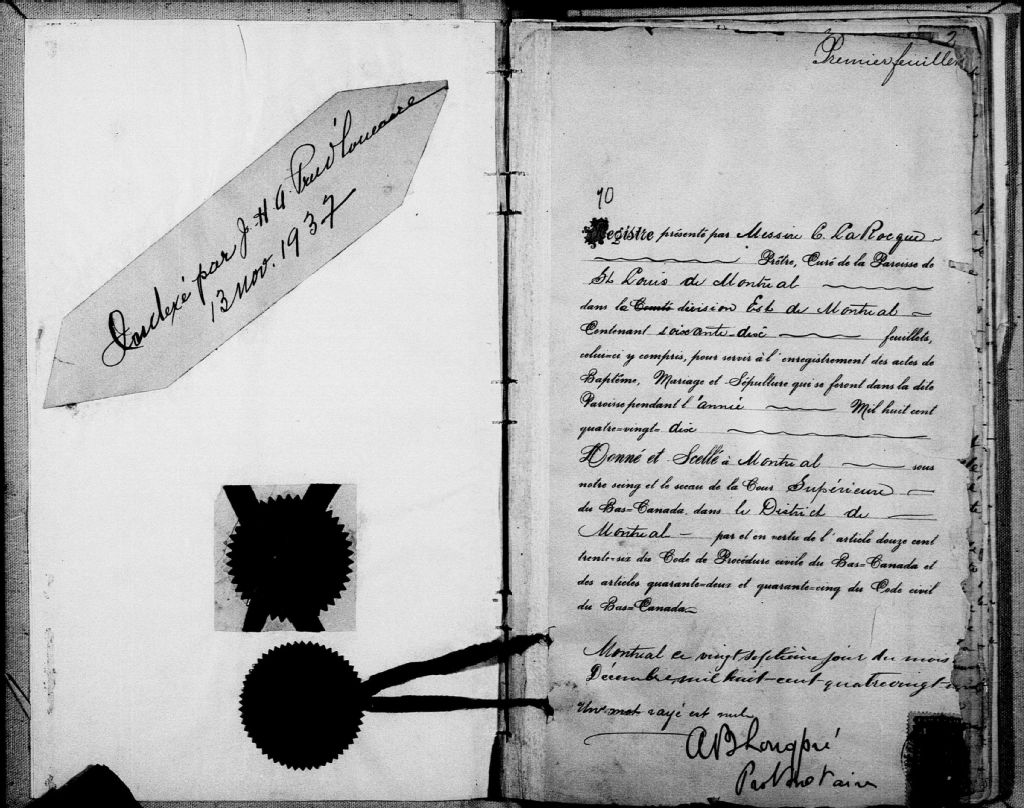 Indexé par J. H. A. Prud'homme
13 nov. 1937
2
Premier feuillet
90
Registre présenté par Messire C. LaRocque
Prêtre, Curé de la Paroisse de
St Louis de Montreal
dans la Comté division Est de Montreal
Contenant soixante-dix feuillets,
celui-ci y compris, pour servir à l'enregistrement des actes de
Baptême, Mariage et Sépulture qui se feront dans la dite
Paroisse pendant l'année Mil huit cent
quatre-vingt-dix
Donné et Scellé à Montreal sous
notre seing et le sceau de la Cour Supérieure
du Bas=Canada, dans le District de
Montreal par et en vertu de l'article douze cent
trente-six du Code de Procédure civile du Bas=Canada et
des articles quarante-deux et quarante-cinq du Code civil
du Bas=Canada
Montreal ce vingt septième jour du mois
Décembre mil huit-cent quatrevingt
Un mot rayé est nul
AB Longpré
ProtNotaire